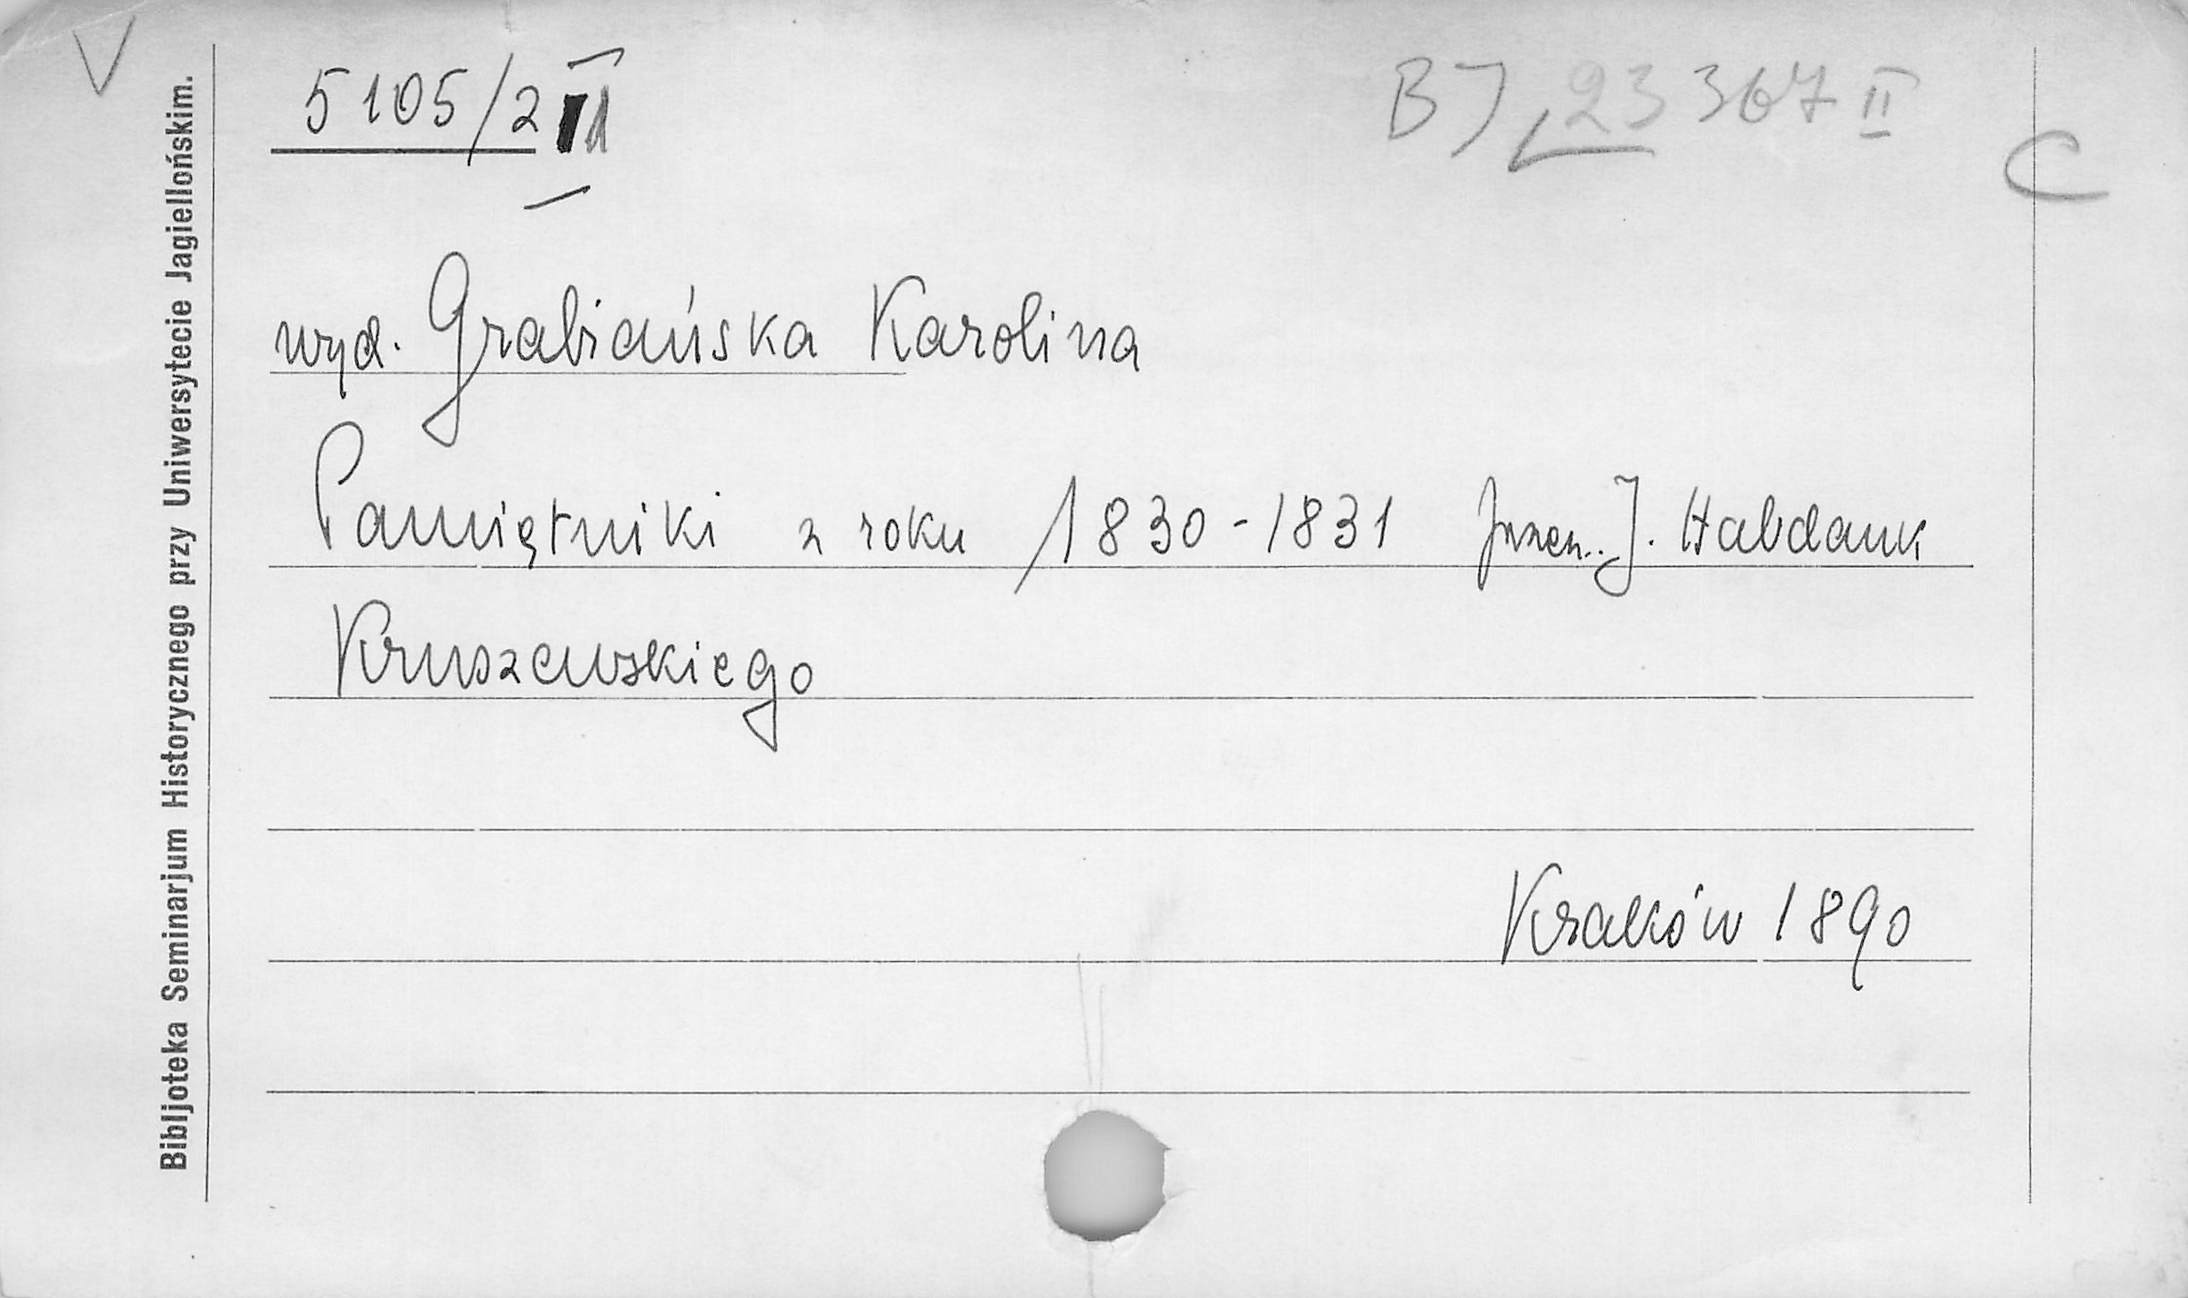 V
5105/2 II
BJ 23 367 II
C
wyd. Grabiańska Karolina
Pamiętniki z roku 1830-1831 przez. J. Habdank
Kruszewskiego
Kraków 1890
Bibljoteka Seminarjum Historycznego przy Uniwersytecie Jagiellońskim.